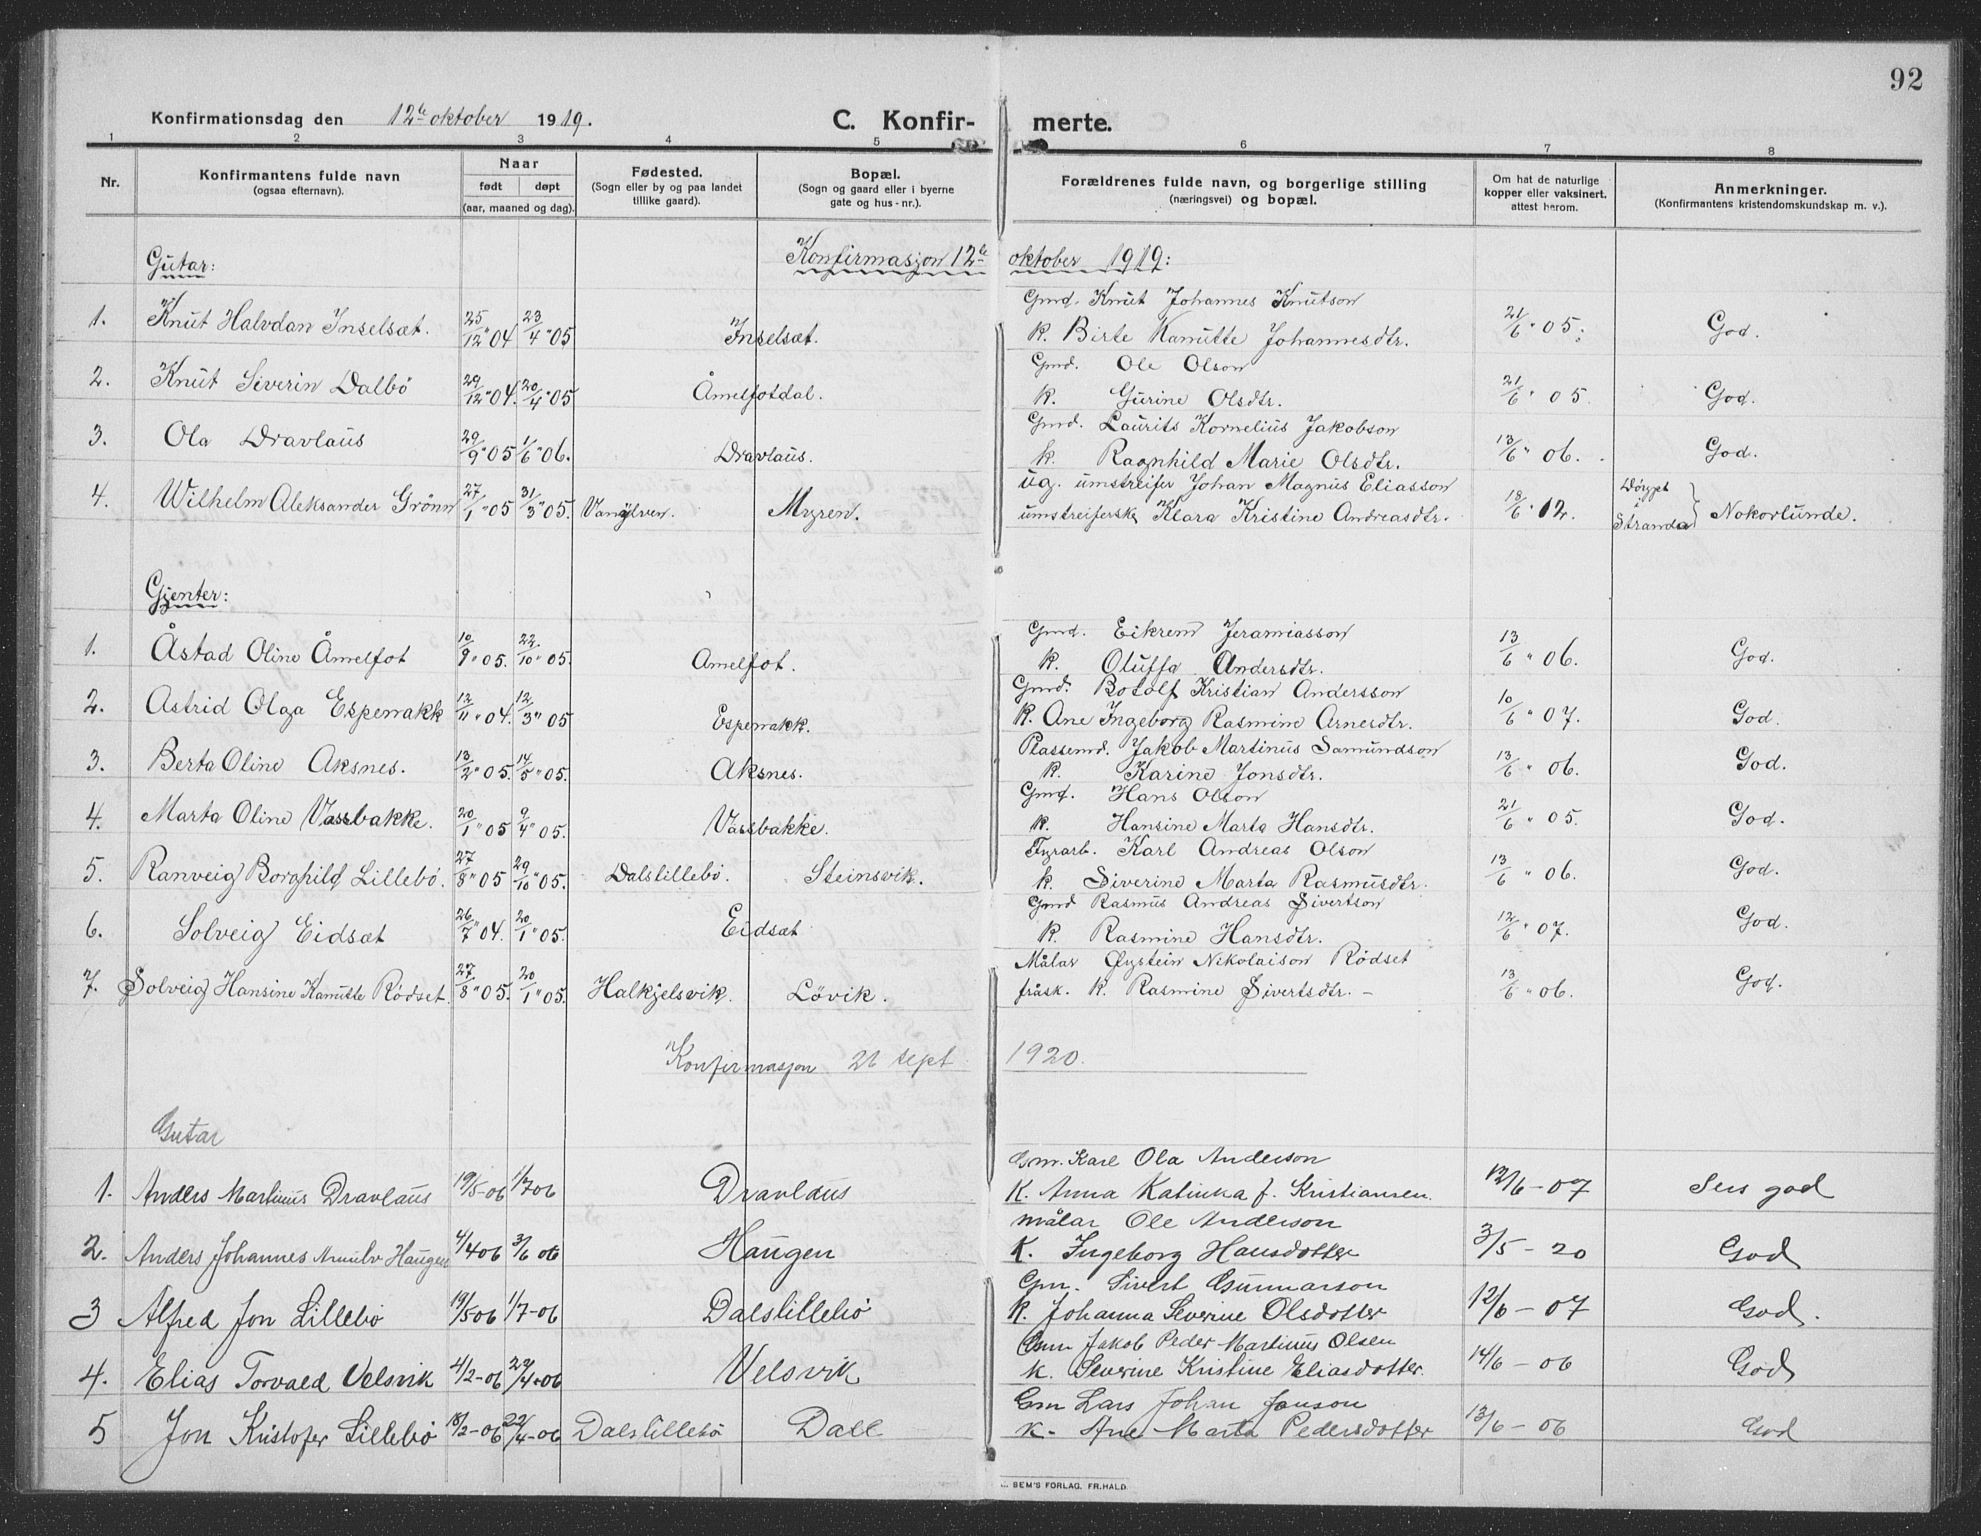 92
Konfirmationsdag den 12te oktober 1919.
C. Konfir- merte.
1 2 3 4 5 6 7 8
Nr.
Konfirmantens fulde navn
(ogsaa efternavn).
Naar
født døpt
(aar, maaned og dag).
Fødested.
(Sogn eller by og paa landet
tillike gaard).
Bopæl.
(Sogn og gaard eller i byerne
gate og hus-nr.).
Forældrenes fulde navn, og borgerlige stilling
(næringsvei) og bopæl.
Om hat de naturlige
kopper eller vaksinert.
attest herom.
Anmerkninger.
(Konfirmantens kristendomskundskap m. v.).
Gutar: Konfirmasjon 12te oktober 1919:
Gmd. Knut Johannes Knutson
1. Knut Halvdan Inselsæt. 25/12 "04 23/4 "05 Inselsæt. k. Birte Kanutte Johannesdtr. 21/6 " 05. God.
Gmd. Ole Olson
2. Knut Siverin Dalbö 29/12 "04. 20/4 "05 Åmelfotdal. k. Gurine Olsdtr. 21/6 " 05. God.
Gmd. Laurits Kornelius Jakobson
3. Ola Dravlaus 29/9 "05 1/6 "06. Dravlaus. k. Ragnhild Marie Olsdtr. 13/6 " 06. God.
ug. umstreifer Johan Magnus Eliasson
4. Wilhelm Aleksander Grönn 27/1 "05 31/3 "05. Vanylven. Myren. umstreifersk Klara Kristine Andreasdtr. 18/6 " 12. Döypt i Stranda } Nokorlunde.
Gjenter:
Gmd. Eikrem Jeramiasson
1. Åstad Oline Åmelfot 10/9 "05. 22/10 "05. Åmelfot. k. Oluffa Andersdtr. 13/6 " 06. God.
Gmd. Botolf Kristian Andersson
2. Astrid Olga Espenakk 12/11 "04. 12/3 "05 Espenakk. k. Ane Ingeborg Rasmine Arnesdtr. 10/6 " 07. God.
Plassemd. Jakob Martinus Samundson
3. Berta Oline Aksnes. 13/2 "05. 14/5 "05. Aksnes. k. Karine Jonsdtr. 13/6 " 06. God.
Gmd. Hans Olson
4. Marta Oline Vassbakke. 20/1 "05 9/4 "05. Vassbakke. k. Hansine Marta Hansdtr. 21/6 " 05. God.
Fyrarb. Karl Andreas Olson
5. Ranveig Borghild Lillebö. 27/8 "05 29/10 "05. Dalslillebö. Steinsvik. k. Siverine Marta Rasmusdtr. 13/6 " 06. God.
Gmd Rasmus Andreas Sivertson
6. Solveig Eidsæt 26/7 "04. 20/1 "05. Eidsæt k. Rasmine Hansdtr. 12/6 " 07. God.
Målar Øystein Nikolaison Rödset
7. Solveig Hansine Kanutte Rödset. 27/8 "05. 20/1 "05. Halkjelsvik. Lövik. fråsk. k. Rasmine Sivertsdtr. – 13/6 " 06. God.
Konfirmasjon 26 sept 1920.
Gutar
Gm. Karl Ola Anderson
1. Anders Martinus Dravlaus 19/5-06 1/7 06 Dravlaus K. Anna Katinka f. Kristiansen. 12/6-07 Sers god
målar Ole Anderson
2. Anders Johannes Haugen 4/4 06 3/6 06 Haugen K. Ingeborg Hansdotter 3/5-20 God
Gm. Sivert Gunnarson
3 Alfred Jon Lillebö 19/5 06 1/7-06 Dalslillebö k. Johanna Severine Olsdotter 12/6-07 God.
Gm Jakob Peder Martinus Olsen
4. Elias Torvald Velsvik 4/2-06 29/4-06 Velsvik k. Severine Kristine Eliasdotter. 14/6-06 God
Gm Lars Johan Jonson
5 Jon Kristofer Lillebö 18/2-06 22/4-06 Dalslillebö Dale k. Ane Marta Pedersdotter 13/6-06 God
SEM'S FORLAG. FR.HALD.